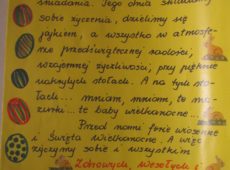 śniadania. Tego dnia składamy
sobie życzenia, dzielimy się
jajkiem, a wszystko w atmosfe-
rze przedświątecznej radości,
wzajemnej życzliwości, przy pięknie
nakrytych stołach. A na tych sto-
łach... mniam, mniam, te ma-
zurki... te baby wielkanocne...
Przed nami ferie wiosenne
i Święta Wielkanocne. A więc
życzymy sobie i wszystkim
Zdrowych, wesołych i